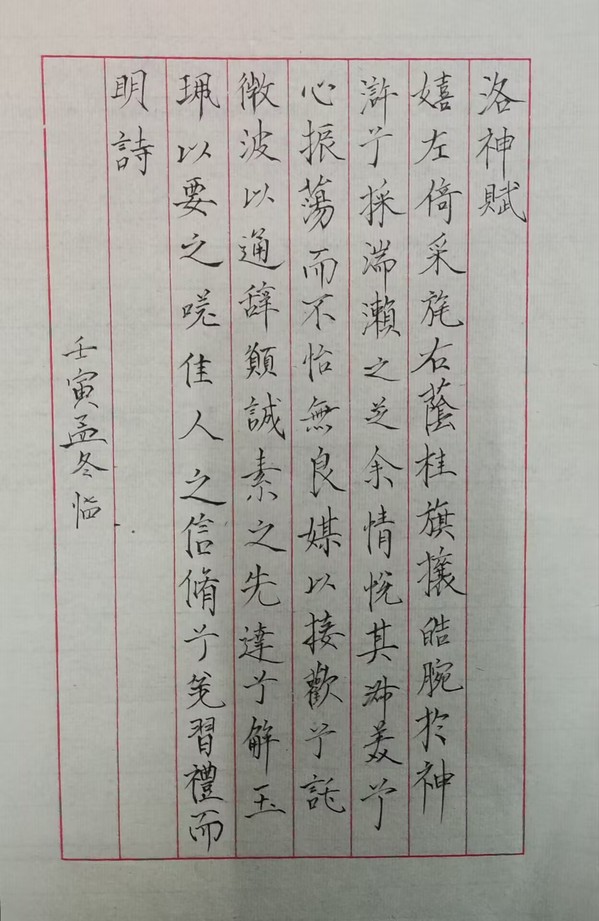 洛神賦
嬉左倚采旄右蔭桂旗攘皓腕於神
滸兮採湍瀨之芝余情悅其淑美兮
心振蕩而不怡無良媒以接歡兮託
微波以通辭願誠素之先達兮解玉
珮以要之嗟佳人之信脩兮羌習禮而
明詩
壬寅孟冬臨